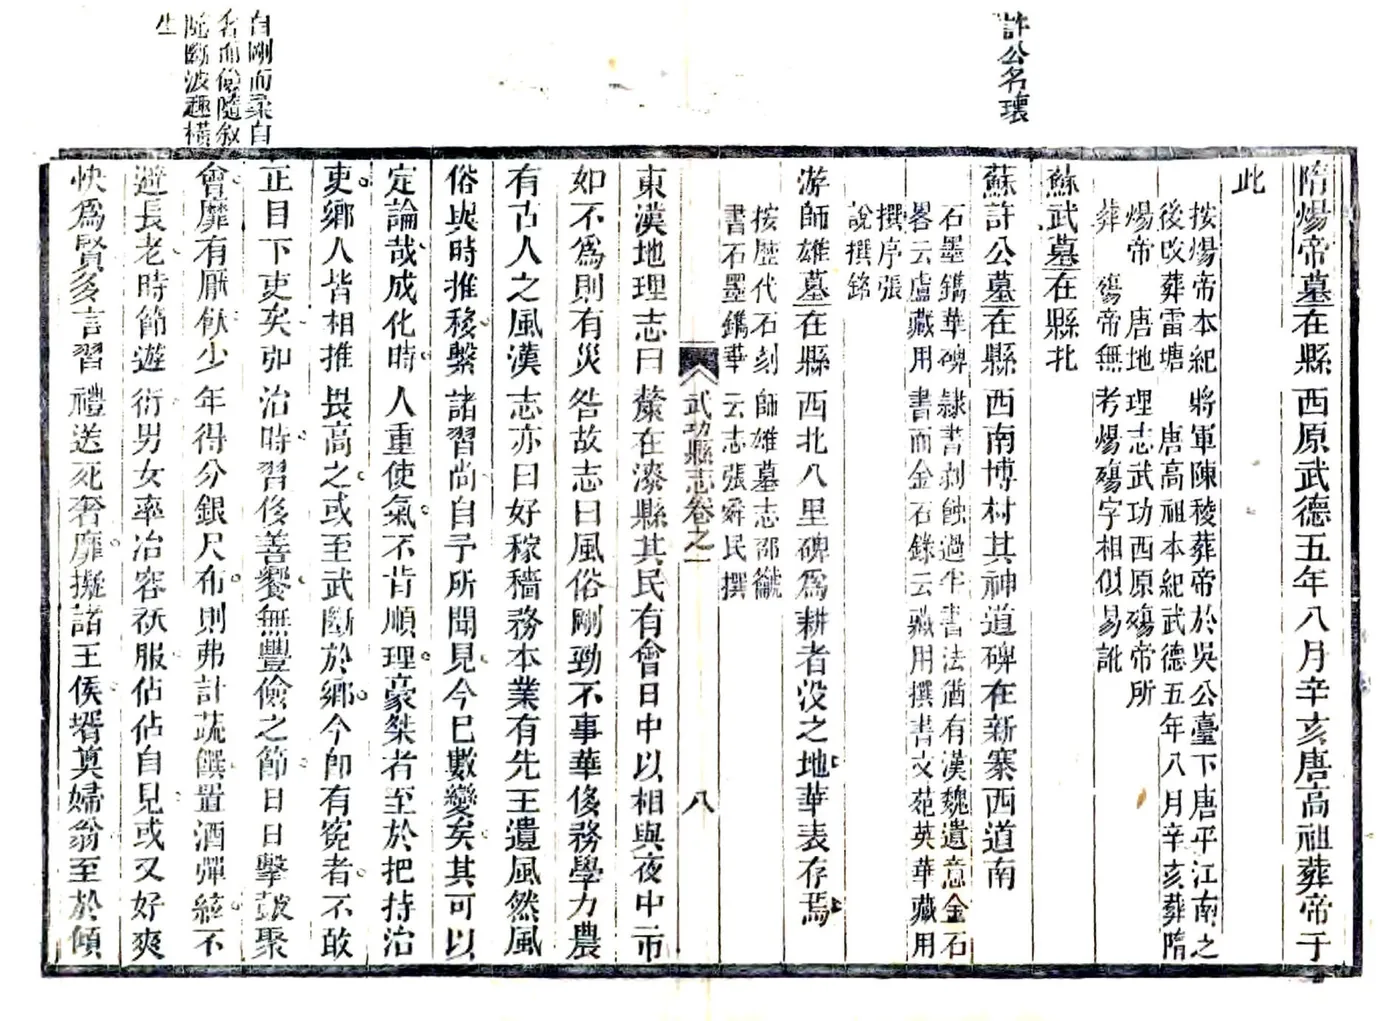 許公名瓌
隋煬帝墓在縣西原武德五年八月辛亥唐高祖葬帝于
此
按煬帝本紀將軍陳稜葬帝於吳公臺下唐平江南之
後改葬雷塘唐高祖本紀武德五年八月辛亥葬隋
煬帝唐地理志武功西原殤帝所
葬殤帝無考煬殤字相似易訛
蘇武墓在縣北
蘇許公墓在縣西南博村其神道碑在新寨西道南
石墨鐫華碑隷書剥蝕過半書法猶有漢魏遺意金石
畧云盧藏用書而金石錄云藏用撰書文苑英華藏用
撰序張
說撰銘
游師雄墓在縣西北八里碑爲耕者没之地華表存焉
按歷代石刻師雄墓志邵䶵
書石墨鐫華云志張舜民撰
武功縣志卷之一
八
東漢地理志曰斄在漆縣其民有會日中以相與夜中市
如不爲則有災咎故志曰風俗剛勁不事華侈務學力農
有古人之風漢志亦曰好稼穡務本業有先王遺風然風
俗與時推移繫諸習尚自予所聞見今巳數變矣其可以
定論哉成化時人重使氣不肯順理豪桀者至於把持治
吏鄉人皆相推畏高之或至武斷於鄉今卽有冤者不敢
正目下吏矣卽治時習侈善饗無豐儉之節日日擊鼓聚
會靡有厭飫少年得分銀尺布則弗計蔬饌置酒彈絃不
避長老時節遊衍男女率冶容祅服佔佔自見或又好爽
快爲賢多言習禮送死奢靡擬諸王侯壻奠婦翁至於傾
自剛而柔自
㫖而偷隨敘
隨斷波趣橫
生